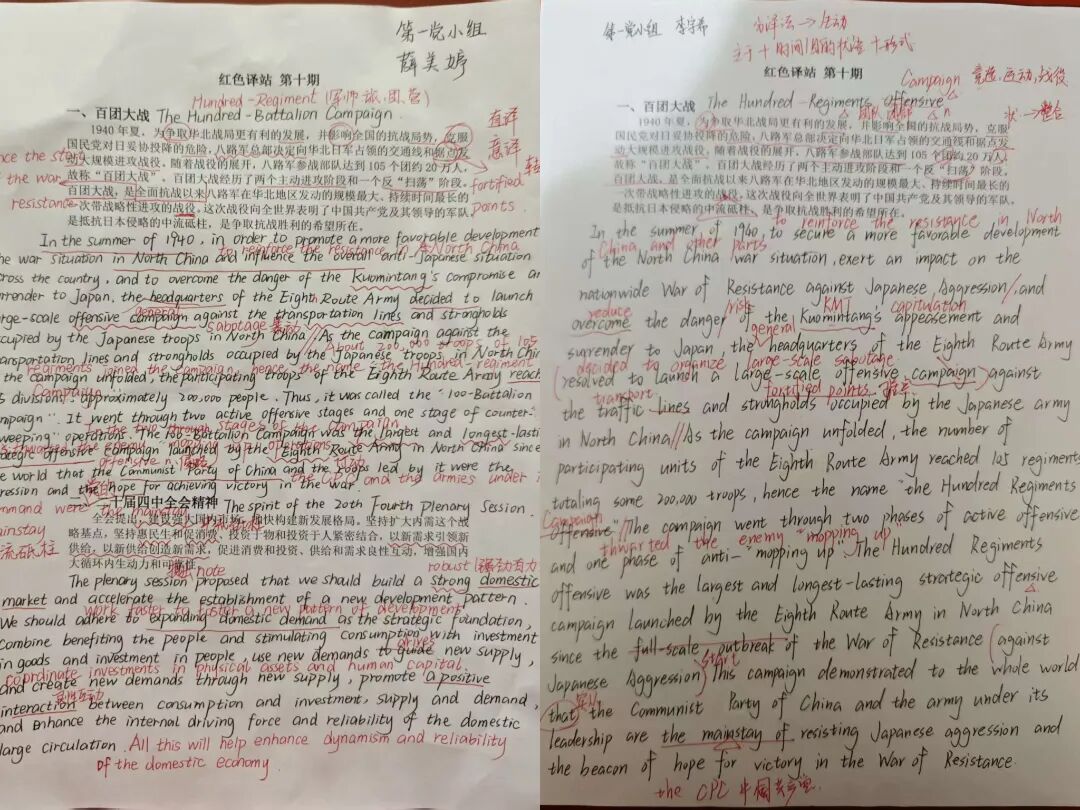 第一党小组
薛美婷
红色译站 第十期
Hundred-Regiment (军师旅团营)
一、百团大战 The Hundred-Battalion Campaign
直译
意译
1940年夏，为争取华北战局更有利的发展，并影响全国的抗战局势，克服
国民党对日妥协投降的危险，八路军总部决定向华北日军占领的交通线和据点发
动大规模进攻战役。随着战役的展开，八路军参战部队达到105个团约20万人，
故称“百团大战”。百团大战经历了两个主动进攻阶段和一个反“扫荡”阶段。
百团大战，是全面抗战以来八路军在华北地区发动的规模最大、持续时间最长的
一次带战略性进攻的战役，这次战役向全世界表明了中国共产党及其领导的军队
是抵抗日本侵略的中流砥柱，是争取抗战胜利的希望所在。
the war
resistance
fortified
points
In the summer of 1940, in order to promote a more favorable development
to reinforce the resistance in North China
the war situation in North China and influence the overall anti-Japanese situation
across the country, and to overcome the danger of the Kuomintang's compromise an
surrender to Japan, the headquarters of the Eighth Route Army decided to launch
general
large-scale offensive campaign against the transportation lines and strongholds
sabotage
occupied by the Japanese troops in North China // As the campaign against the
about 200,000 troops of 105
transportation lines and strongholds occupied by the Japanese troops in North Chin
regiments joined the campaign, hence the name the Hundred-regiment
the campaign unfolded, the participating troops of the Eighth Route Army reach
campaign
divisions, approximately 200,000 people. Thus, it was called the "100-Battalion
Campaign". It went through two active offensive stages and one stage of counter-
In the two through stages of the campaign
sweeping" operations. The 100-Battalion Campaign was the largest and longest-lasti
strategic offensive campaign launched by the Eighth Route Army in North China since
the world that the Communist Party of China and the troops led by it were the
the CPC and the armies under i
and the hope for achieving victory in the war.
command were the mainstay
二十届四中全会精神 The spirit of the 20th Fourth Plenary Session.
mainstay
中流砥柱
全会提出，建设强大国内市场，加快构建新发展格局。坚持扩大内需这个战
略基点，坚持惠民生和促消费、投资于物和投资于人紧密结合，以新需求引领新
供给，以新供给创造新需求，促进消费和投资、供给和需求良性互动，增强国内
大循环内生动力和可靠性。
note
robust
The plenary session proposed that we should build a strong domestic
market and accelerate the establishment of a new development pattern.
work faster to foster a new pattern of development
We should adhere to expanding domestic demand as the strategic foundation,
combine benefiting the people and stimulating consumption with investment
drives
in goods and investment in people, use new demands to guide new supply,
coordinate investments in physical assets and human capital.
and create new demands through new supply, promote a positive
良性互动
interaction between consumption and investment, supply and demand,
and enhance the internal driving force and reliability of the domestic
large circulation. All this will help enhance dynamism and reliability
of the domestic economy.
第一党小组 李宇希
主动
主于+时间/目的状语+形式
红色译站 第十期
Campaign 竞选，运动，战役
一、百团大战 The Hundred-Regiments offensive
n
整合
1940年夏，为争取华北战局更有利的发展，并影响全国的抗战局势，克服
国民党对日妥协投降的危险，八路军总部决定向华北日军占领的交通线和据点发
动大规模进攻战役。随着战役的展开，八路军参战部队达到105个团约20万人，
故称“百团大战”。百团大战经历了两个主动进攻阶段和一个反“扫荡”阶段。
百团大战，是全面抗战以来八路军在华北地区发动的规模最大、持续时间最长的
一次带战略性进攻的战役，这次战役向全世界表明了中国共产党及其领导的军队
是抵抗日本侵略的中流砥柱，是争取抗战胜利的希望所在。
to reinforce the resistance in North
In the summer of 1940, to secure a more favorable development
China, and other parts
of the North China war situation, exert an impact on the
nationwide War of Resistance against Japanese Aggression, // and
reduce risk KMT capitulation
overcome the danger of the Kuomintang's appeasement and
general
surrender to Japan, the headquarters of the Eighth Route Army
decided to organize large-scale sabotage
(resolved to launch a large-scale offensive campaign) against
transport fortified points
the traffic lines and strongholds occupied by the Japanese army
in North China // As the campaign unfolded, the number of
participating units of the Eighth Route Army reached 105 regiments
totaling some 200,000 troops, hence the name "the Hundred Regiments
Campaign
Offensive" // The campaign went through two phases of active offensive
thwarted the enemy "mopping up
and one phase of anti-"mopping up". The Hundred Regiments
offensive was the largest and longest-lasting strategic offensive
campaign launched by the Eighth Route Army in North China
since the full-scale outbreak of the War of Resistance (against
start
Japanese Aggression) This campaign demonstrated to the whole world
that the Communist Party of China and the army under its
leadership are the mainstay of resisting Japanese aggression and
the beacon of hope for victory in the War of Resistance.
the CPC 中国共产党